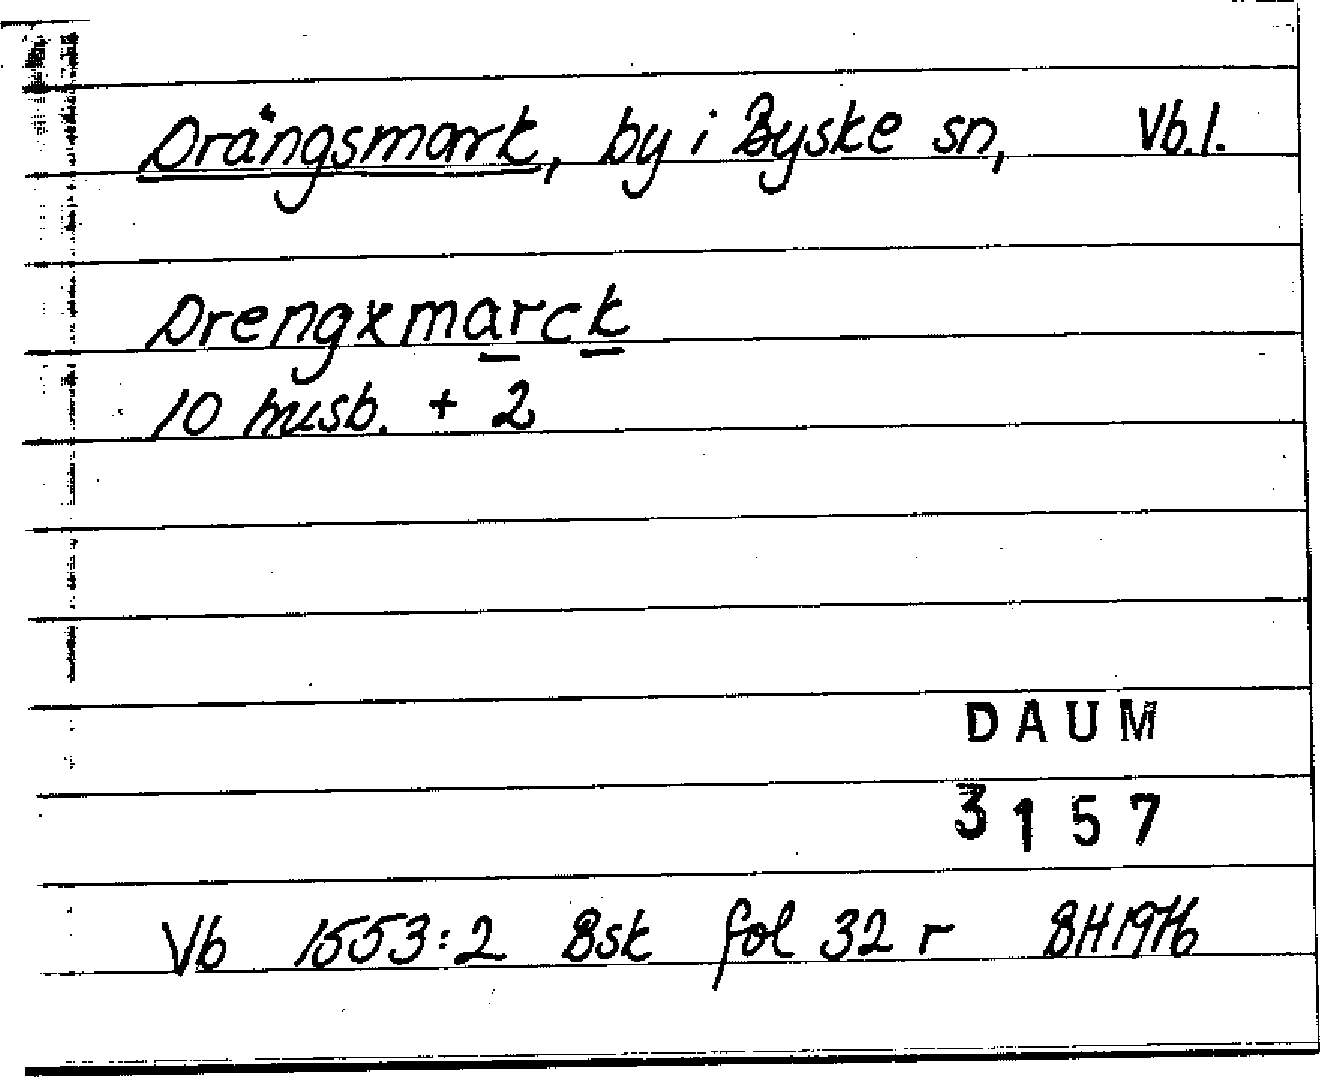 Drängsmark, by i Byske sn, Vb.l.
Drengxmarck
10 husb. + 2
DAUM
3157
Vb 1553:2 Bsk fol 32 r BH 1976